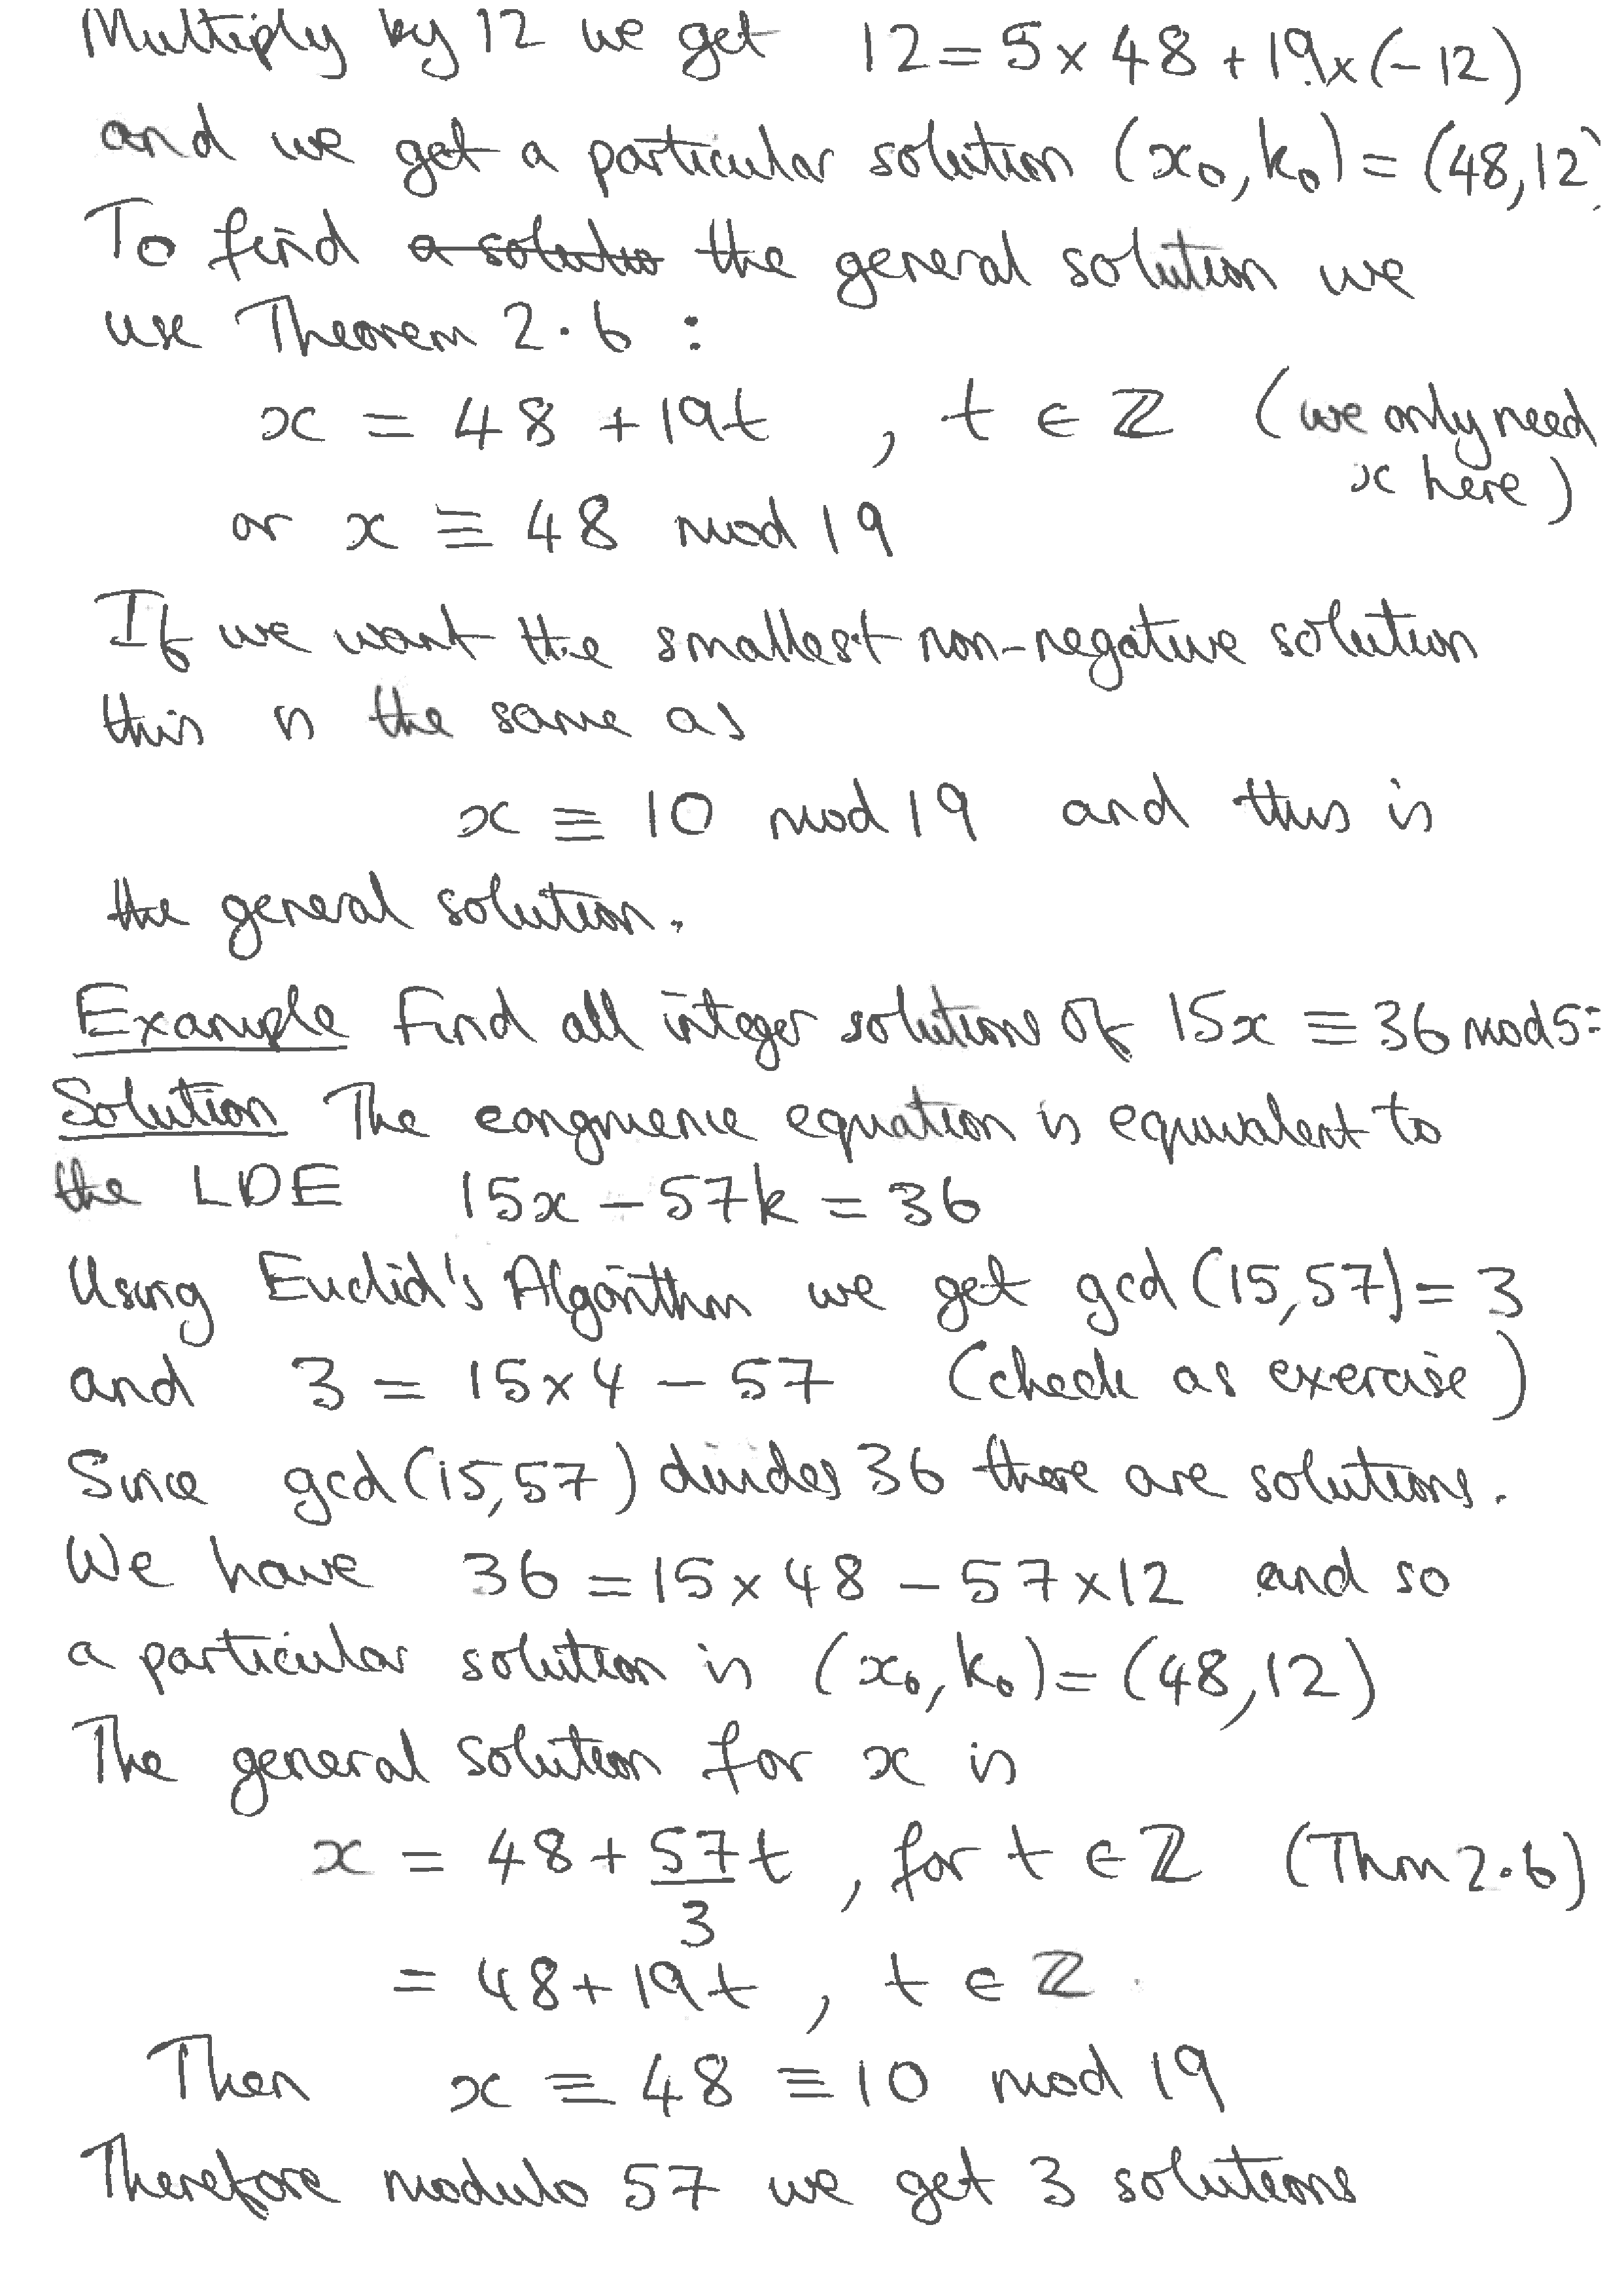 Multiply by 12 we get 12 = 5 × 48 + 19 × (-12)
and we get a particular solution (x₀, k₀) = (48, 12)
To find a solutio the general solution we
use Theorem 2.6 :
x = 48 + 19t , t ∈ ℤ (we only need
x here)
or x ≡ 48 mod 19
If we want the smallest non-negative solution
this is the same as
x ≡ 10 mod 19 and this is
the general solution.
Example Find all integer solutions of 15x ≡ 36 mod 5
Solution The congruence equation is equivalent to
the LDE 15x - 57k = 36
Using Euclid's Algorithm we get gcd (15, 57) = 3
and 3 = 15 × 4 - 57 (check as exercise)
Since gcd (15, 57) divides 36 there are solutions.
We have 36 = 15 × 48 - 57 × 12 and so
a particular solution is (x₀, k₀) = (48, 12)
The general solution for x is
x = 48 + 57/3 t , for t ∈ ℤ (Thm 2.6)
= 48 + 19t , t ∈ ℤ
Then x ≡ 48 ≡ 10 mod 19
Therefore modulo 57 we get 3 solutions